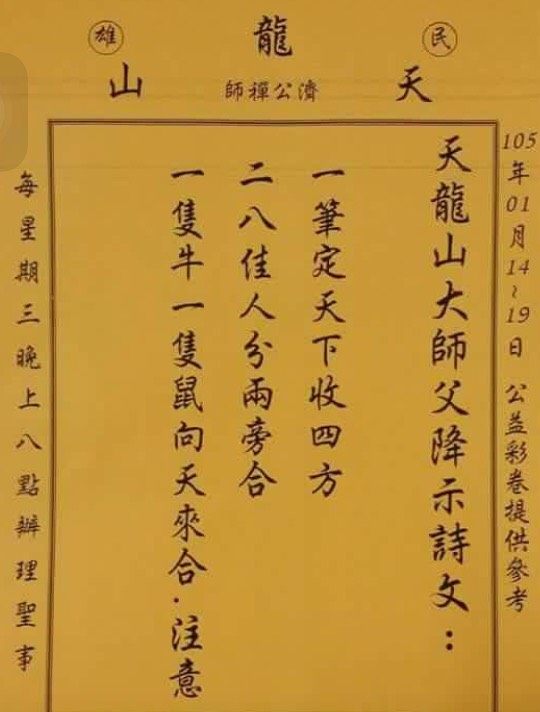 民
龍
雄
天
濟公禪師
山
105年01月14~19日 公益彩卷提供參考
天龍山大師父降示詩文：
一筆定天下收四方
二八佳人分兩旁合
一隻牛一隻鼠向天來合．注意
每星期三晚上八點辦理聖事